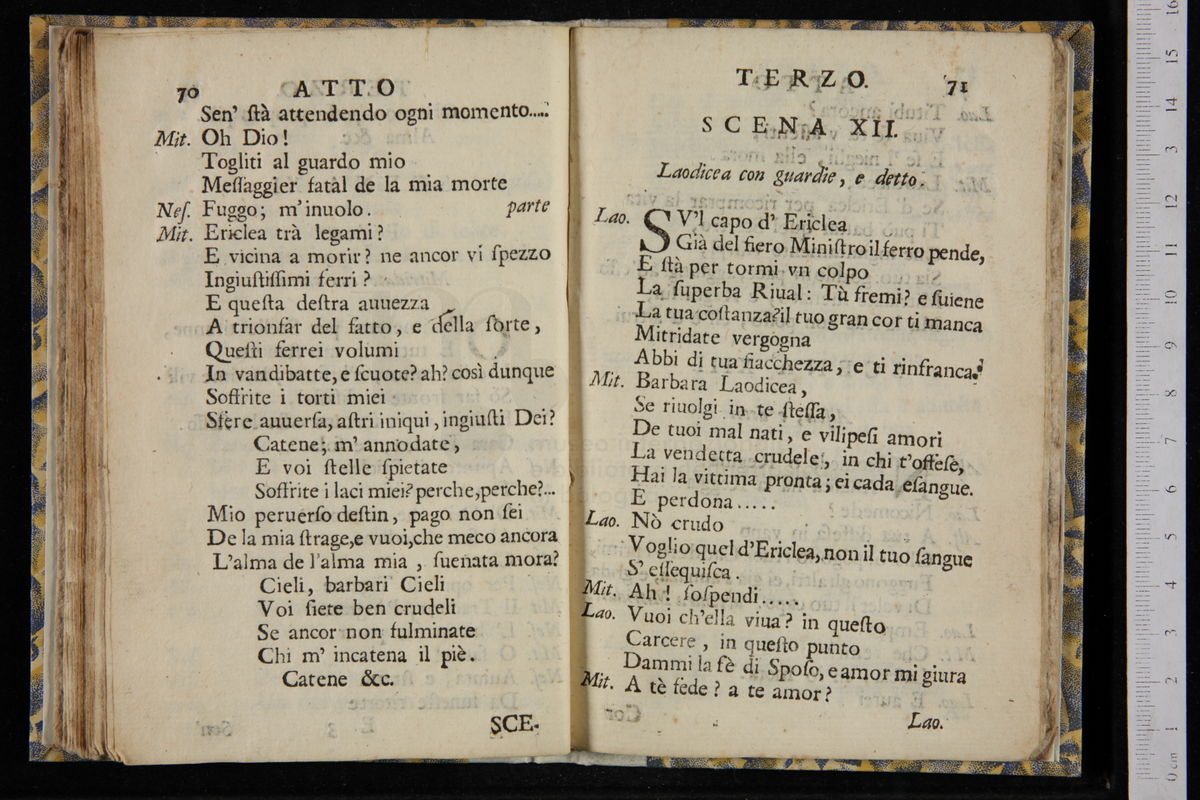 70 ATTO
Sen' ſtà attendendo ogni momento....
Mit. Oh Dio!
Togliti al guardo mio
Meſſaggier fatàl de la mia morte
Neſ. Fuggo; m'inuolo. parte
Mit. Ericlea trà legami?
E vicina a morir? ne ancor vi ſpezzo
Ingiuſtiſſimi ferri?
E queſta deſtra auuezza
A trionfar del fatto, e della ſorte,
Queſti ferrei volumi
In vandibatte, e ſcuote? ah? così dunque
Soffrite i torti miei
Sfere auuerſa, aſtri iniqui, ingiuſti Dei?
Catene; m' annodate,
E voi ſtelle ſpietate
Soffrite i laci miei? perche, perche?...
Mio peruerſo deſtin, pago non ſei
De la mia ſtrage, e vuoi, che meco ancora
L'alma de l'alma mia, ſuenata mora?
Cieli, barbari Cieli
Voi ſiete ben crudeli
Se ancor non fulminate
Chi m' incatena il piè.
Catene &c.
SCE-
TERZO. 71
SCENA XII.
Laodicea con guardie, e detto.
Lao. SV'l capo d' Ericlea
Già del fiero Miniſtro il ferro pende,
E ſtà per tormi vn colpo
La ſuperba Riual: Tù fremi? e ſuiene
La tua coſtanza? il tuo gran cor ti manca
Mitridate vergogna
Abbi di tua fiacchezza, e ti rinfranca.
Mit. Barbara Laodicea,
Se riuolgi in te ſteſſa,
De tuoi mal nati, e vilipeſi amori
La vendetta crudele, in chi t'offeſe,
Hai la vittima pronta; ei cada eſangue.
E perdona.....
Lao. Nò crudo
Voglio quel d'Ericlea, non il tuo ſangue
S' eſſequiſca.
Mit. Ah! ſoſpendi.....
Lao. Vuoi ch'ella viua? in queſto
Carcere, in queſto punto
Dammi la fè di Spoſo, e amor mi giura
Mit. A tè fede? a te amor?
Lao.